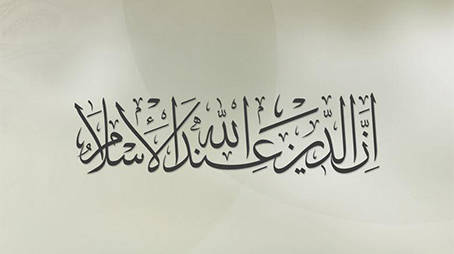 إِنَّ الدِّينَ عِندَ اللهِ الْإِسْلَامُ